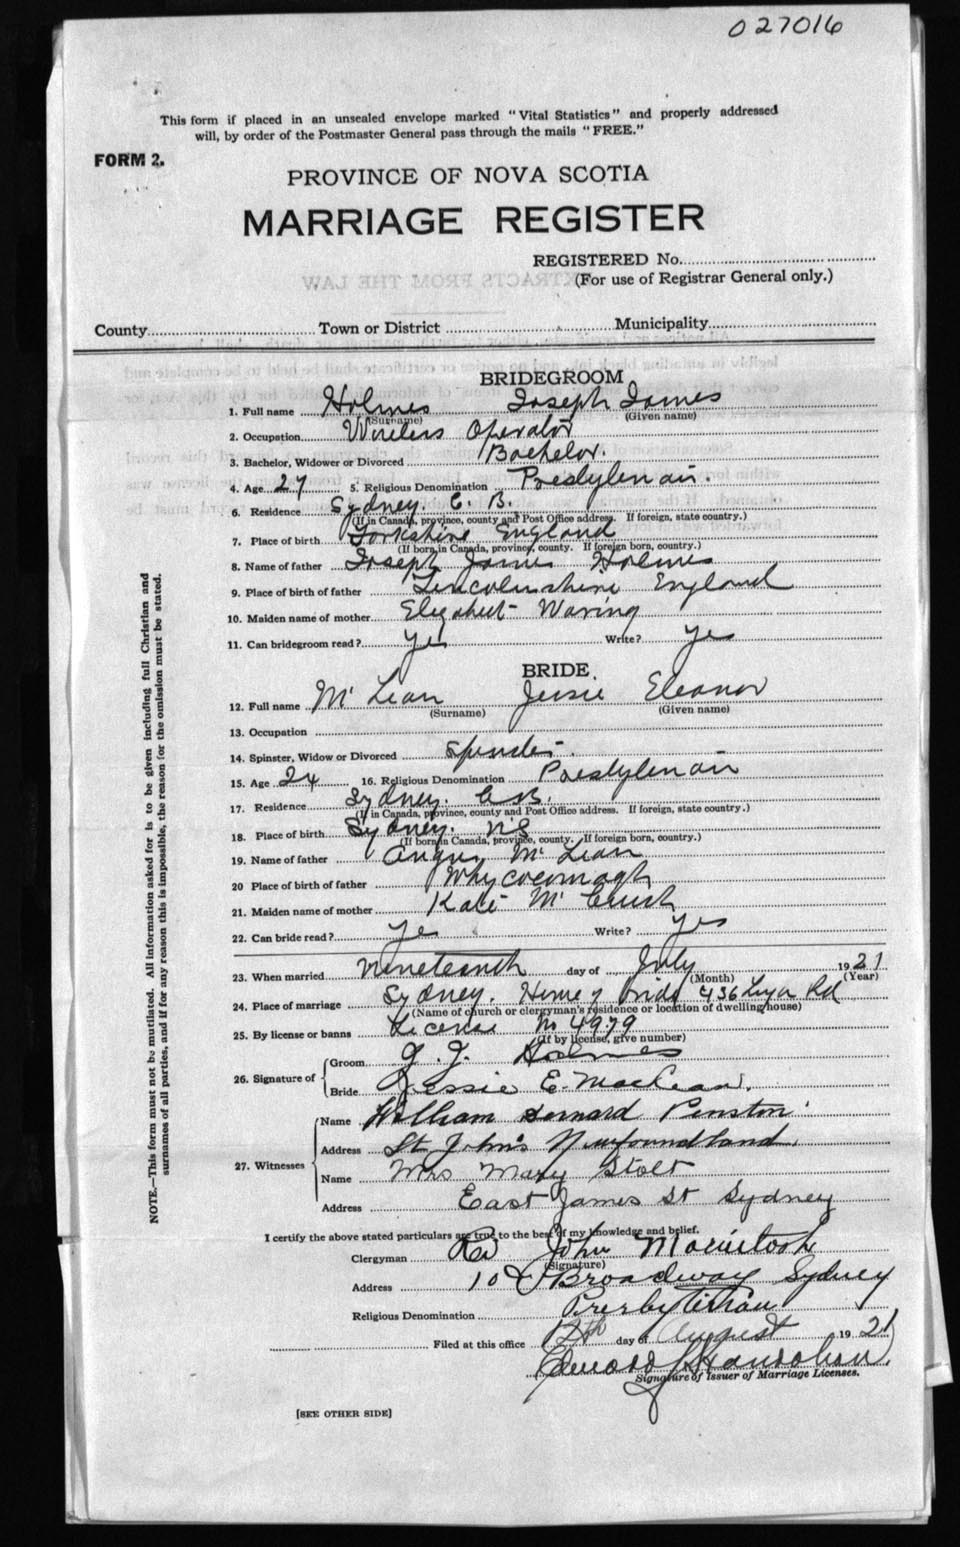 027016
This form if placed in an unsealed envelope marked "Vital Statistics" and properly addressed
will, by order of the Postmaster General pass through the mails "FREE."
FORM 2.
PROVINCE OF NOVA SCOTIA
MARRIAGE REGISTER
REGISTERED No.
(For use of Registrar General only.)
EXTRACTS FROM THE LAW
County Town or District Municipality
BRIDEGROOM
1. Full name Holmes Joseph James
(Surname) (Given name)
2. Occupation Wireless Operator
3. Bachelor, Widower or Divorced Bachelor.
4. Age 27 5. Religious Denomination Presbyterian.
6. Residence Sydney. C. B.
(If in Canada, province, county and Post Office address. If foreign, state country.)
7. Place of birth Yorkshire England
(If born in Canada, province, county. If foreign born, country.)
8. Name of father Joseph James Holmes
9. Place of birth of father Lincolnshire England
10. Maiden name of mother Elizabeth Waring
11. Can bridegroom read? yes Write? yes
BRIDE.
12. Full name McLean Jessie Eleanor
(Surname) (Given name)
13. Occupation
14. Spinster, Widow or Divorced Spinster
15. Age 24 16. Religious Denomination Presbyterian
17. Residence Sydney. C.B.
(If in Canada, province, county and Post Office address. If foreign, state country.)
18. Place of birth Sydney. N.S
(If born in Canada, province, county. If foreign born, country.)
19. Name of father Angus McLean
20 Place of birth of father Whycocomagh
21. Maiden name of mother Kate Mc
22. Can bride read? yes Write? yes
23. When married nineteenth day of July 1921
(Month) (Year)
24. Place of marriage Sydney. Home of bride 436 Rd
(Name of church or clergyman's residence or location of dwelling house)
25. By license or banns License No 4979
(If by license, give number)
26. Signature of Groom J. J. Holmes
Bride Jessie E. MacLean.
27. Witnesses Name William Bernard Penston
Address St John's Newfoundland.
Name Mrs Mary Stolt
Address East James St Sydney
I certify the above stated particulars are true to the best of my knowledge and belief.
Clergyman Rev John Macintosh
(Signature)
Address Broadway Sydney
Religious Denomination Presbyterian
Filed at this office 12th day of August 1921
Signature of Issuer of Marriage Licenses.
[SEE OTHER SIDE]
NOTE.—This form must not be mutilated. All information asked for is to be given including full Christian and
surnames of all parties, and if for any reason this is impossible, the reason for the omission must be stated.